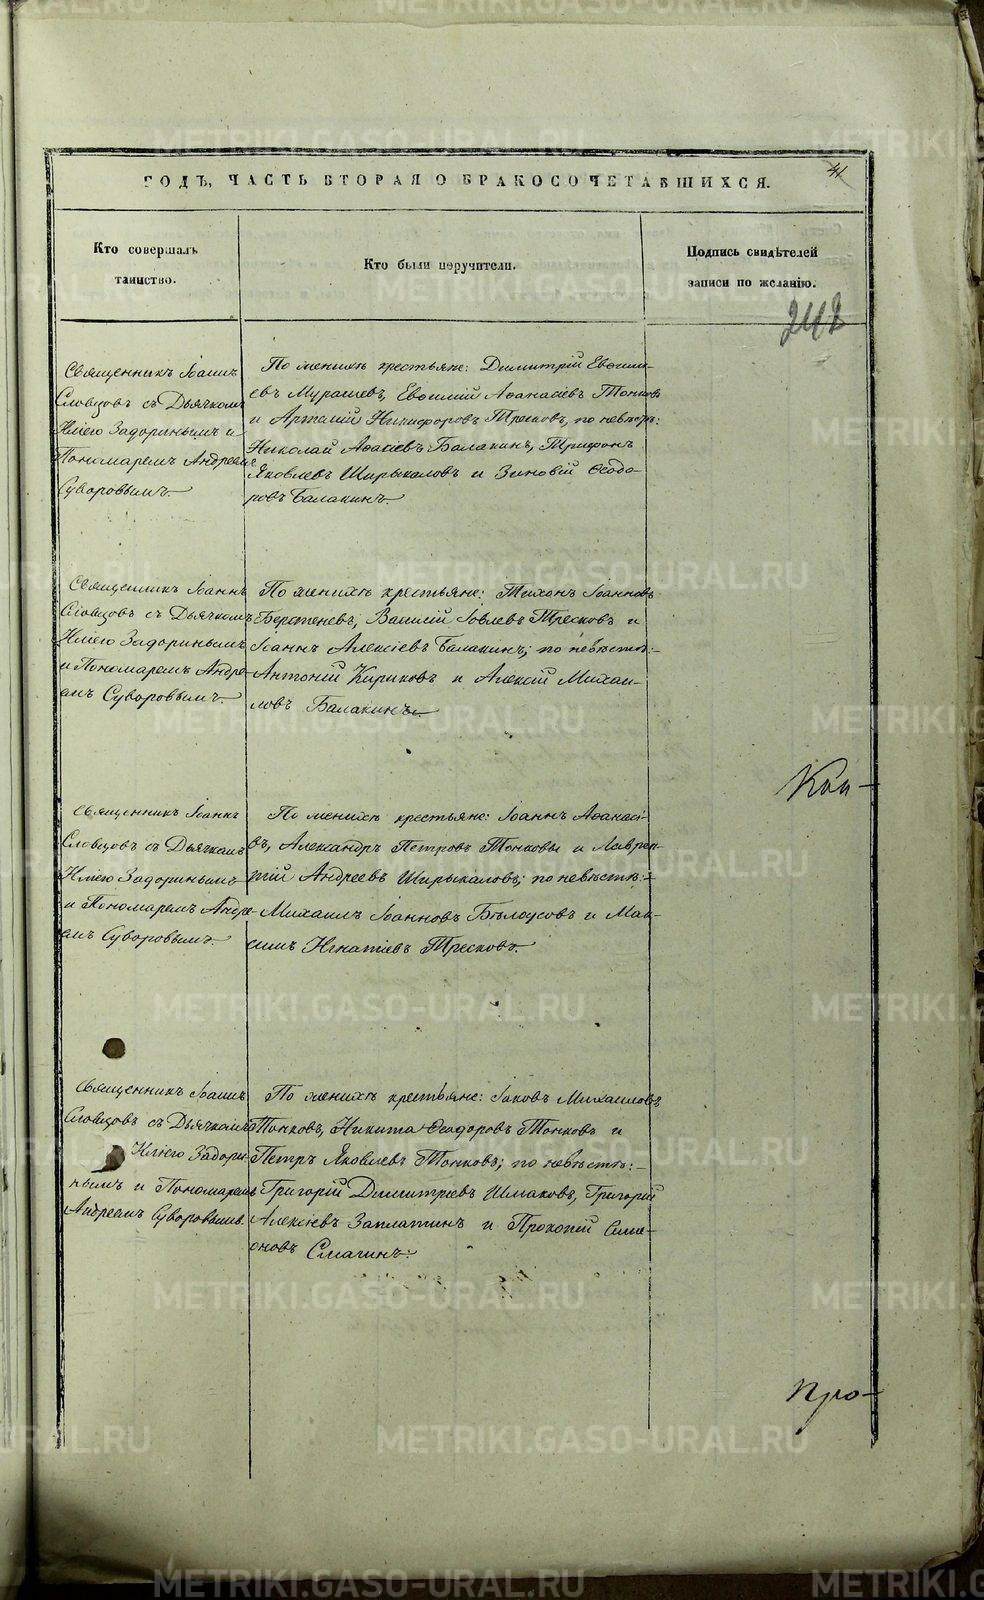 41
ГОДЪ, ЧАСТЬ ВТОРАЯ О БРАКОСОЧЕТАВШИХСЯ.
Кто совершалъ
таинство.
Кто были поручители.
Подпись свидѣтелей
записи по желанію.
242
Священникъ Іоаннъ
Словцовъ съ Дьячкомъ
Иліею Задоринымъ и
Пономаремъ Андреемъ
Суворовымъ.
По женихѣ крестьяне: Димитрій Евѳимі-
евъ Мурашевъ, Евѳимій Аѳанасіевъ Тонковъ
и Артемій Никифоровъ Тресковъ, по невѣстѣ:
Николай Балакинъ, Трифонъ
Яковлевъ Ширыкаловъ и Зиновій Ѳеодо-
ровъ Балакинъ.
Священникъ Іоаннъ
Словцовъ съ Дьячкомъ
Иліею Задоринымъ
и Пономаремъ Андре-
емъ Суворовымъ.
По женихѣ крестьяне: Тихонъ Іоанновъ
Берстеневъ, Василій Іовлевъ Тресковъ и
Іоаннъ Алексіевъ Балакинъ; по невѣстѣ:-
Антоній Кириковъ и Алексій Михаи-
ловъ Балакинъ.
Кол-
Священникъ Іоаннъ
Словцовъ съ Дьячкомъ
Иліею Задоринымъ
и Пономаремъ Андре-
емъ Суворовымъ.
По женихѣ крестьяне: Іоаннъ Аѳанасі-
евъ, Александръ Петровъ Тонковы и Лаврен-
тій Андреевъ Ширыкаловъ; по невѣстѣ:-
Михаилъ Іоанновъ Бѣлоусовъ и Мак-
симъ Игнатіевъ Тресковъ.
Священникъ Іоаннъ
Словцовъ съ Дьячкомъ
Иліею Задори-
нымъ и Пономаремъ
Андреемъ Суворовымъ.
По женихѣ крестьяне: Іаковъ Михаиловъ
Тонковъ, Никита Ѳеодоровъ Тонковъ и
Петръ Яковлевъ Тонковъ; по невѣстѣ:-
Григорій Димитріевъ Шмаковъ, Григорій
Алексіевъ Заплатинъ и Прокопій Симе-
оновъ Смагинъ.
Про-
METRIKI.GASO-URAL.RU